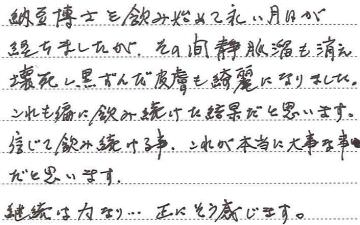 納豆博士を飲み始めて永い月日が
経ちましたが、その間静脈瘤も消え
壊死し黒ずんだ皮膚も綺麗になりました。
これも偏に飲み続けた結果だと思います。
信じて飲み続ける事、これが本当に大事な事
だと思います。
継続は力なり… 正にそう感じます。